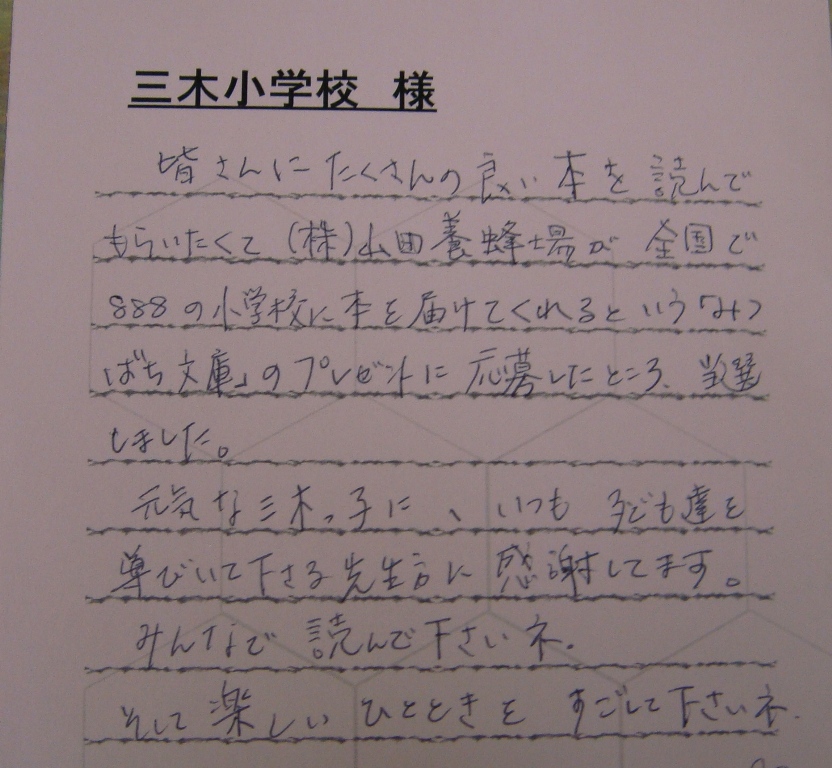 三木小学校 様
皆さんにたくさんの良い本を読んで
もらいたくて (株)山田養蜂場が 全国で
888の小学校に本を届けてくれるという「みつ
ばち文庫」のプレゼントに応募したところ、当選
しました。
元気な三木っ子に、いつも 子ども達を
導びいて下さる先生方に感謝してます。
みんなで 読んで下さいネ。
そして楽しい ひとときを すごして下さいネ.